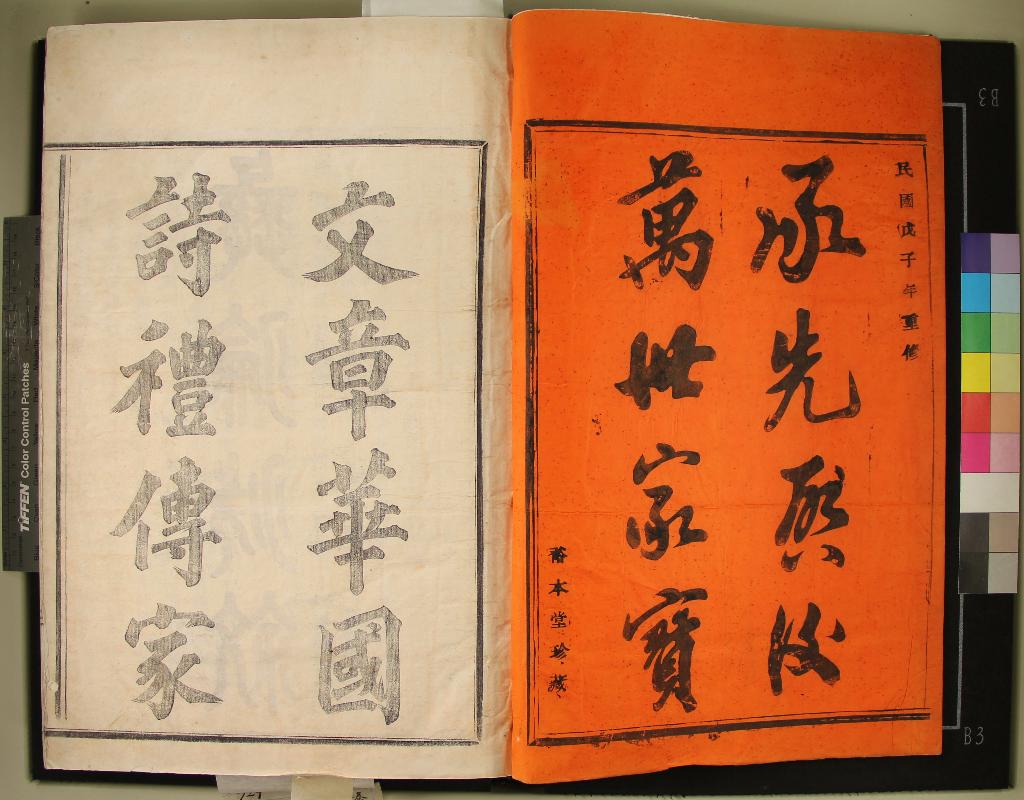 民國戊子年重修
承先啓後
萬世家寶
裕本堂珍藏
文章華國
詩禮傳家
TIFFEN Color Control Patches
B3
B3